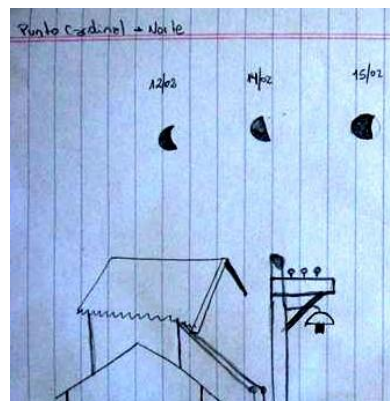 Punto Cardinal → Norte
12/02 14/02 15/02